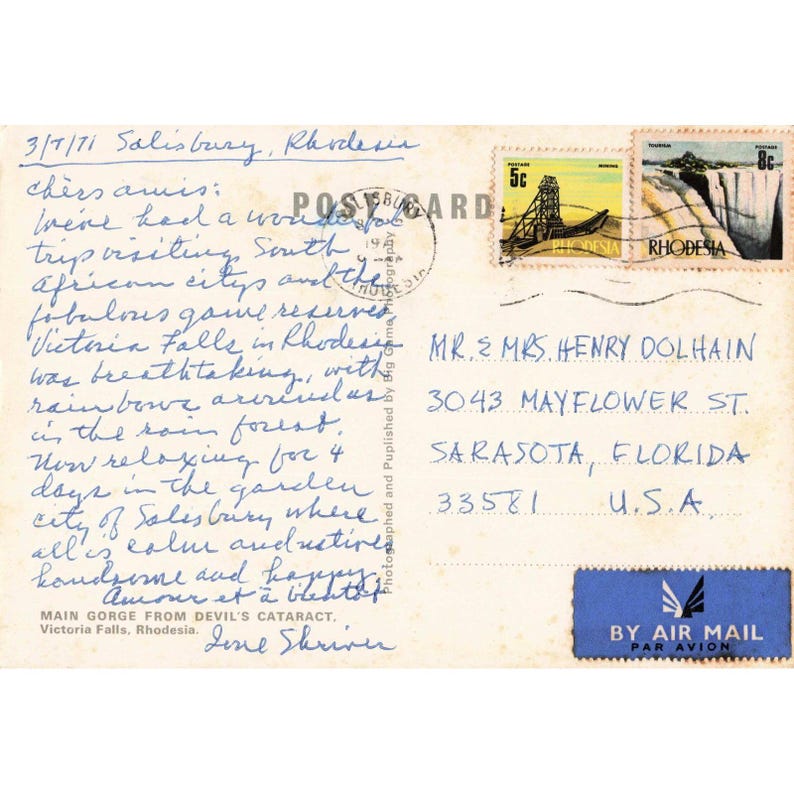 3/7/71 Salisbury, Rhodesia
chèrs amis:
We've had a wonderful
trip visiting South
African citys and the
fabulous game reserves,
Victoria Falls in Rhodesia
was breathtaking, with
rainbows around us
in the rain forest.
Now relaxing for 4
days in the garden
city of Salisbury where
all is calm and natives
handsome and happy.
Amour et à bientôt
Shriver
MAIN GORGE FROM DEVIL'S CATARACT,
Victoria Falls, Rhodesia.
POST CARD
Photographed and Puplished by Big Game Photography
SALISBURY
RHODESIA
POSTAGE MINING
5c
RHODESIA
TOURISM POSTAGE
8c
RHODESIA
MR. & MRS. HENRY DOLHAIN
3043 MAYFLOWER ST.
SARASOTA, FLORIDA
33581 U.S.A.
BY AIR MAIL
PAR AVION